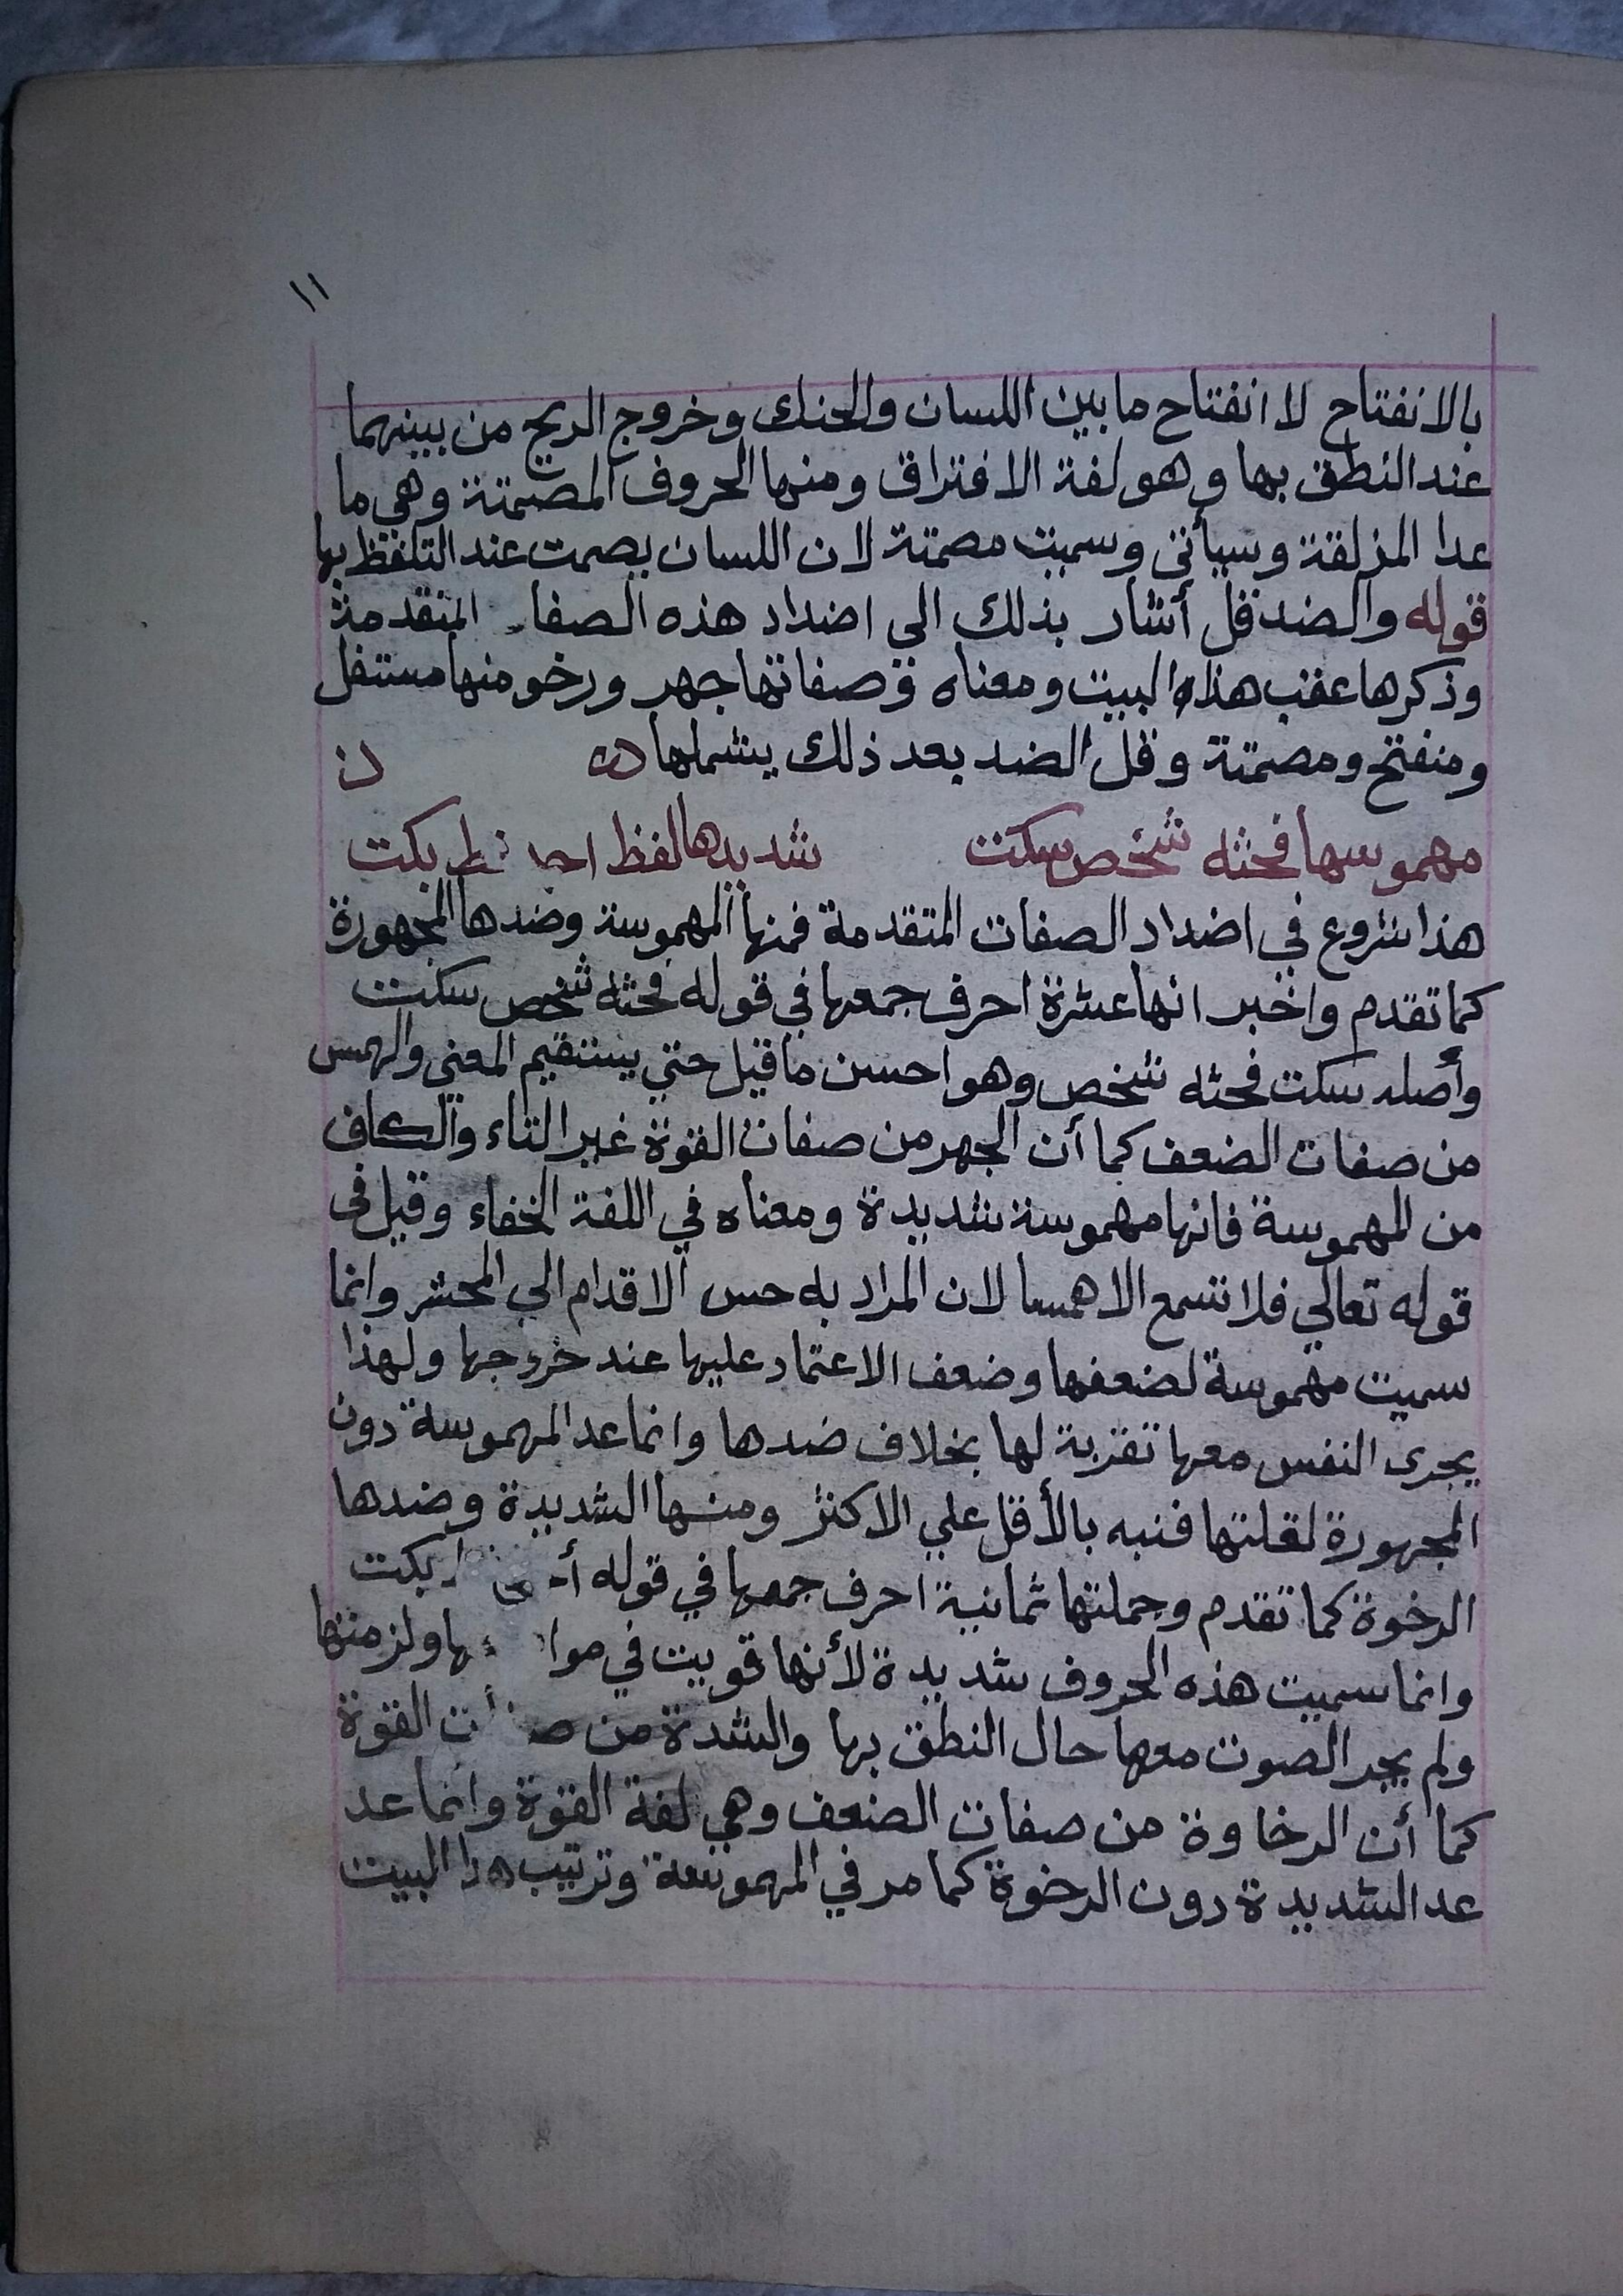 ١١
بالانفتاح لا انفتاح ما بين اللسان والحنك وخروج الريح من بينهما
عند النطق بها وهو لغة الافتراق ومنها الحروف المصمتة وهي ما
عدا المزلقة وسيأتي وسميت مصمتة لان اللسان يصمت عند التلفظ بها
قوله والضد قل أشار بذلك الى اضداد هذه الصفا المتقدمة
وذكرها عقب هذا البيت ومعناه وصفاتها جهر ورخو منها مستفل
ومنفتح ومصمتة وقل الضد بعد ذلك يشملها
مهموسها فحثه شخص سكت شديدها لفظ بكت
هذا شروع في اضداد الصفات المتقدمة فمنها المهموسة وضدها المجهورة
كما تقدم واخبر انها عشرة احرف جمعها في قوله فحثه شخص سكت
وأصله سكت فحثه شخص وهو احسن ما قيل حتي يستقيم المعني والهمس
من صفات الضعف كما أن الجهر من صفات القوة غير التاء والكاف
من المهموسة فانها مهموسة شديدة ومعناه في اللغة الخفاء وقيل في
قوله تعالي فلا تسمع الا همسا لان المراد به حس الاقدام الي المحشر وانما
سميت مهموسة لضعفها وضعف الاعتماد عليها عند خروجها ولهذا
يجرى النفس معها تقربة لها بخلاف ضدها وانما عد المهموسة دون
المجهورة لقلتها فنبه بالأقل علي الاكثر ومنها الشديدة وضدها
الرخوة كما تقدم وجملتها ثمانية احرف جمعها في قوله بكت
وانما سميت هذه الحروف شديدة لأنها قويت في ولزمتها
ولم يجر الصوت معها حال النطق بها والشدة من القوة
كما أن الرخاوة من صفات الضعف وهي لغة القوة وانما عد
عد الشديدة دون الرخوة كما مر في المهموسة وترتيب هذا البيت